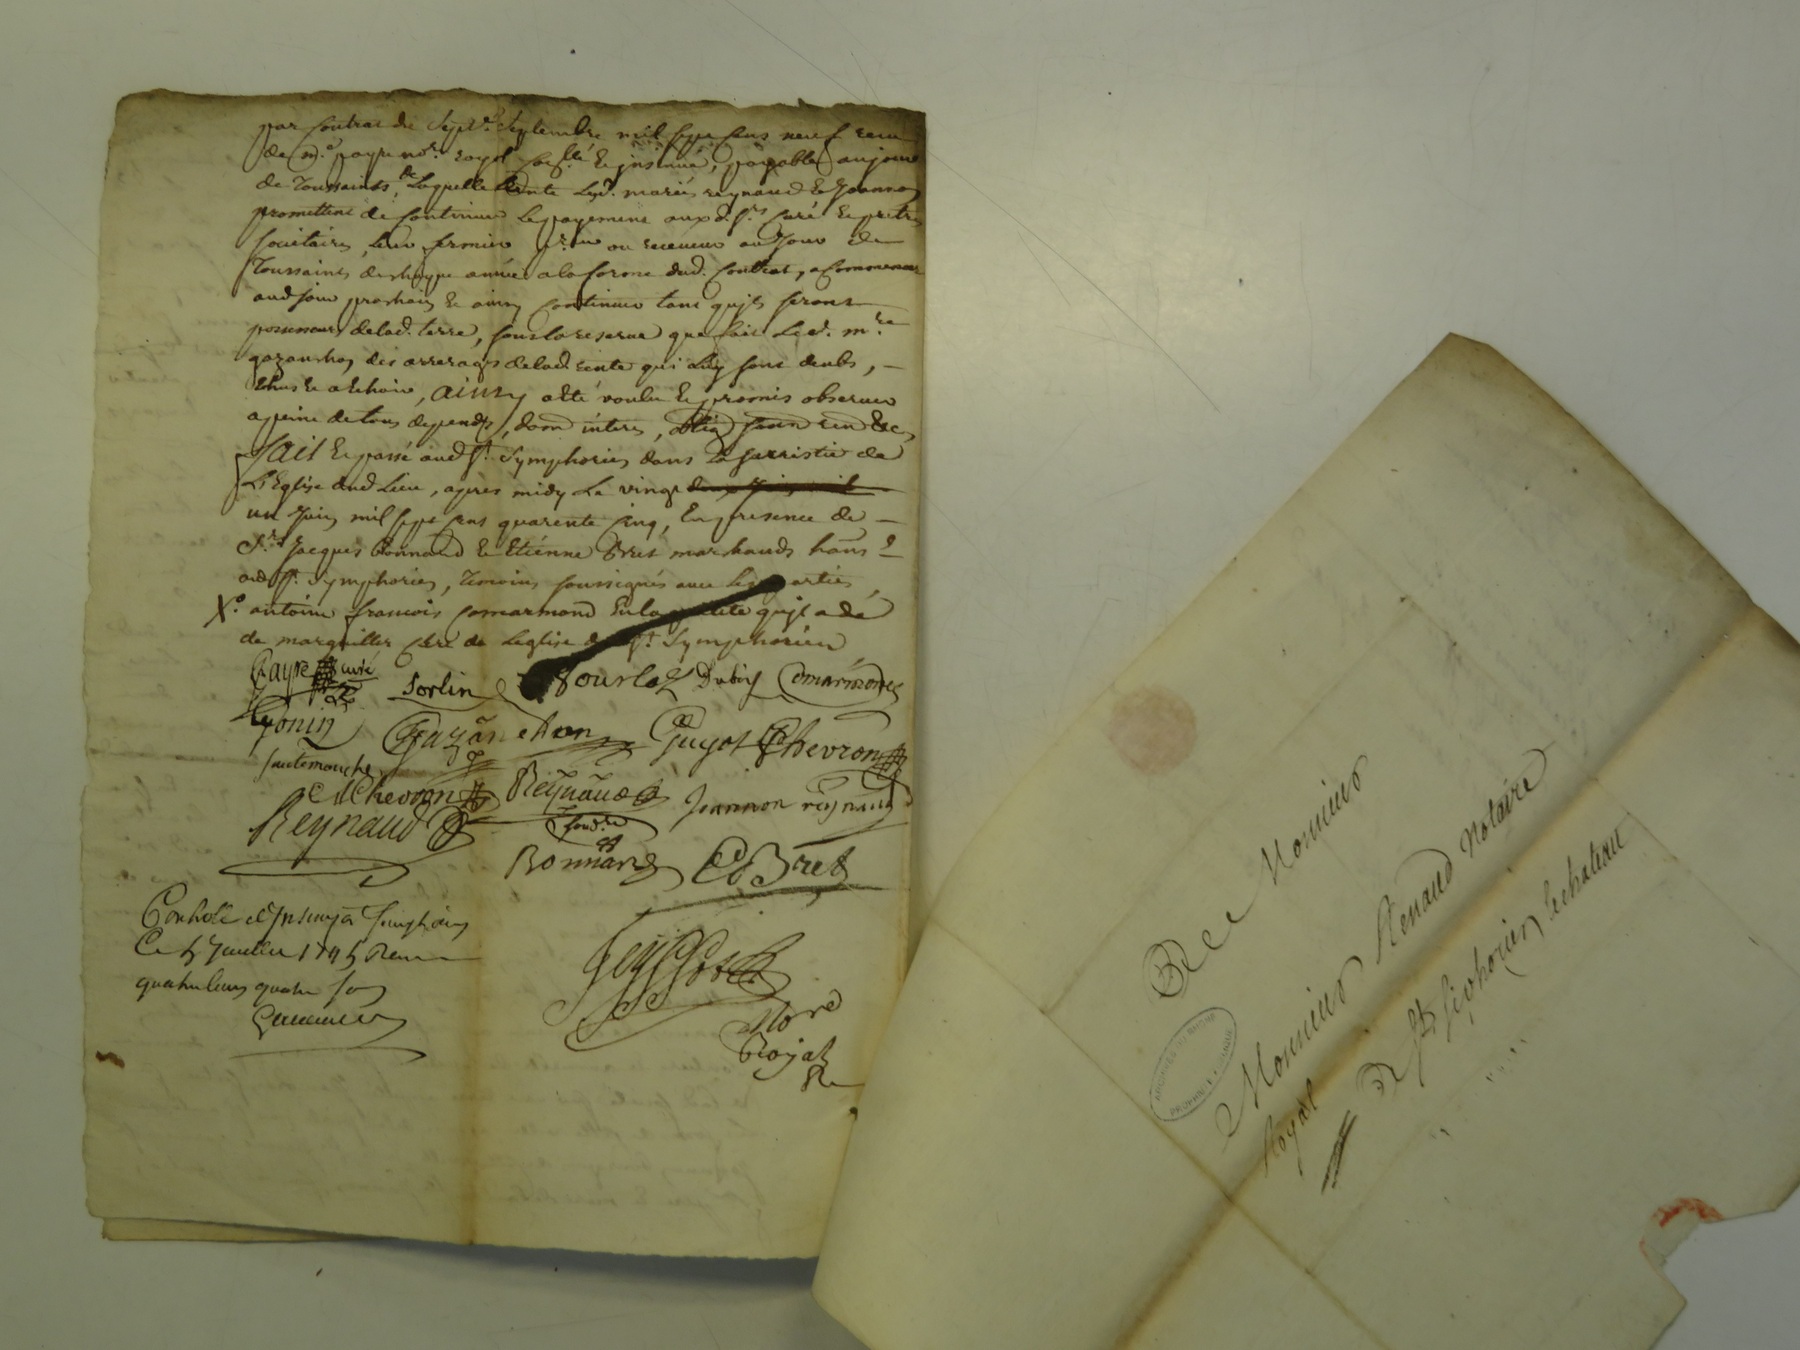 par contrat du sept.e septembre mil sept cens neuf recu
de m.e payre no.re royal con.llé & insinué, payable aujour
de Toussaints, laquelle rente lesd. mariés reynaud & Joannon
promettent de continuer le payement auxd. s.rs curé & pretres
societaires, leur fermier ou receveur au Jour de
Toussaints de chaque année a la forme dud. contrat, a commencer
aud. jour prochain & ainsy continuer tant qu'jls seront
possesseurs de lad. terre, sous la reserve que fait led. m.re
gazanchon des arrerages de lad. rente qui luy sont deubs,
echus & a echoir, ainsy a eté voulu & promis observer
a peine de tous depends, dom interets, oblig
fait & passé aud. St. Symphorien dans la sacristie de
L'Eglise dud. Lieu, apres midy le vingt
un Juin mil sept cens quarente cinq, En presence de
S.rs Jacques Bonnard & Etiénne Bret marchands
aud. St. Symphorien, temoins soussignés avec les parties
X.e antoine francois comarmond En la qualité qu'jl a dé
de marguiller de Leglise de St. Symphorien
Payre curé Sorlin Fourlaz Dubuy Comarmond
Gonin Gazanchon Guyot Chevron
sautemouche
Chevron Reynaud Jeannon reynaud
Reynaud
Bonnard E Bret
Controllé et Insinué a
Ce 5 Juillet 1745 Recu
quatre livres quatre sols
Nore
Royal
A Monsieur
Monsieur Renaud Notaire
Royal
A St. Siphorien le chateau
ARCHIVES DU RHÔNE